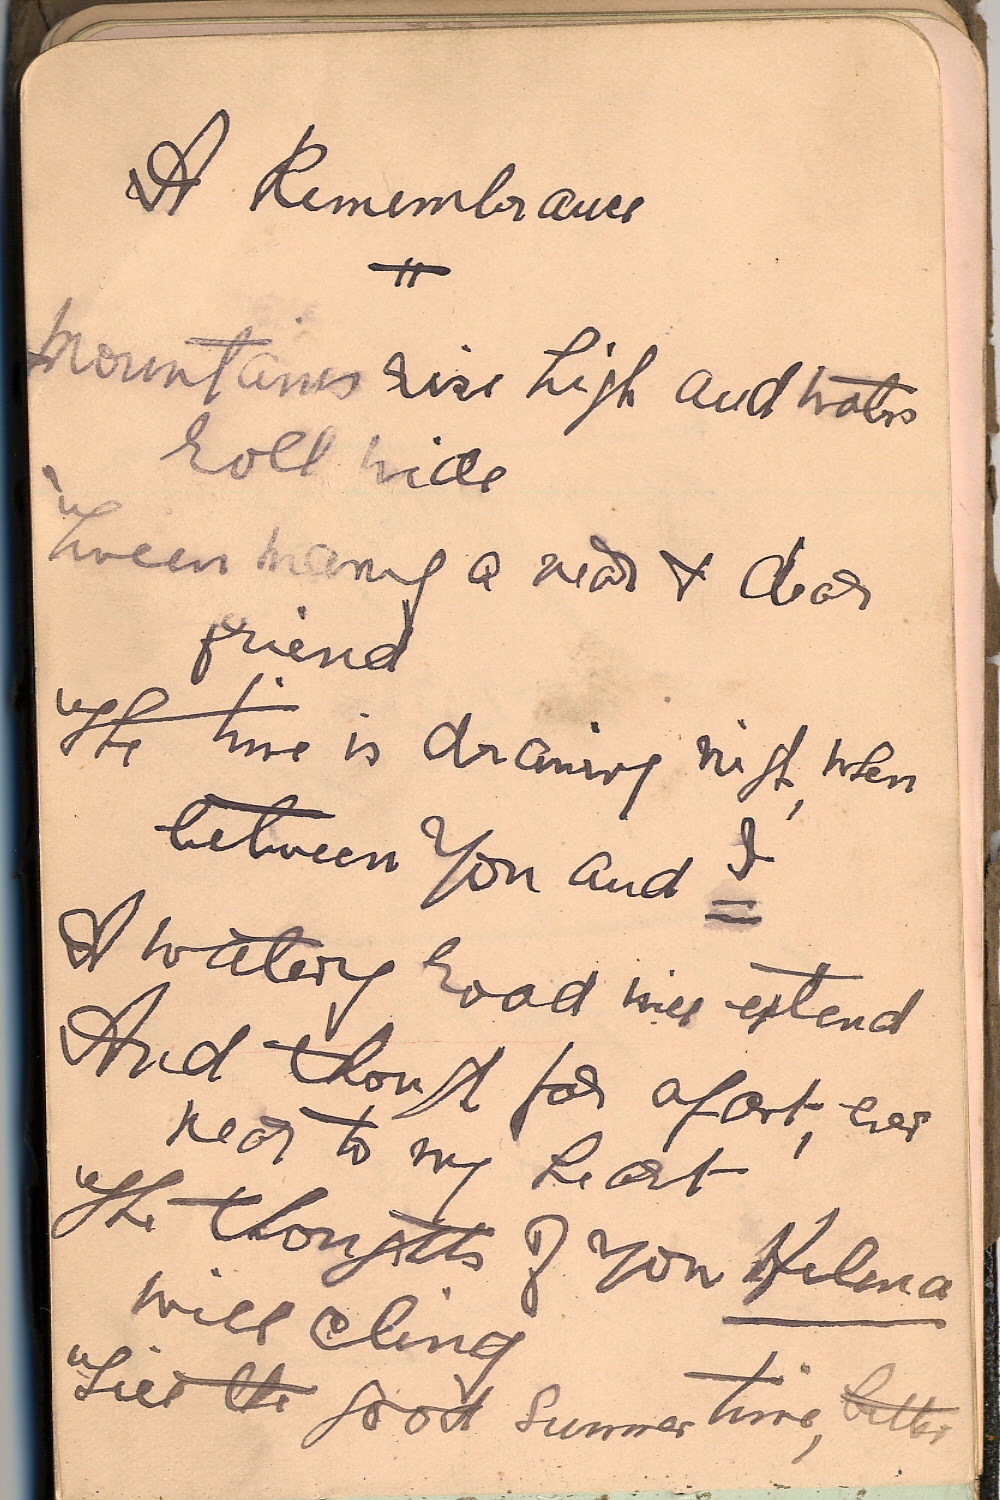 A Remembrance
Mountains rise high and waters
roll wide
'Tween many a near & dear
friend
The time is drawing nigh, when
between You and I
A watery road will extend
And though far apart, ever
near to my heart
The thoughts of You Helma
will cling
Till the good summer time, better